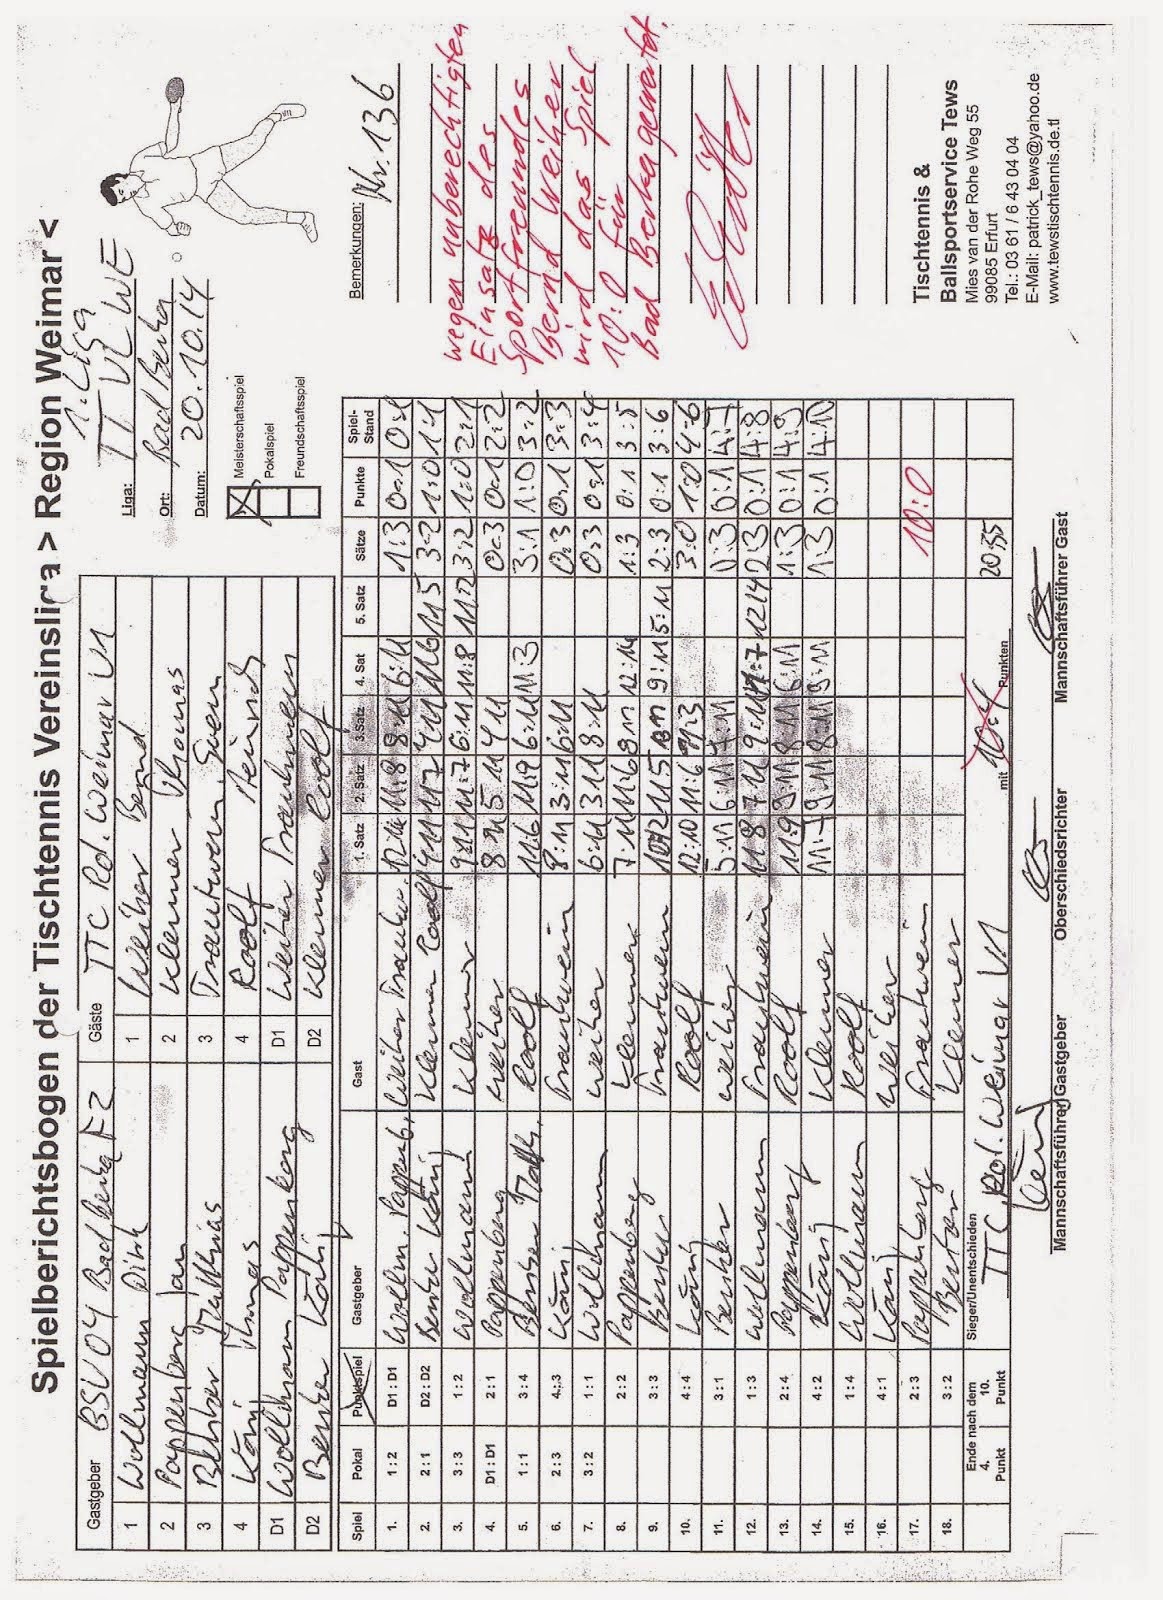 Spielberichtsbogen der Tischtennis Vereinsliga > Region Weimar <
Gastgeber BSV 04 Bad Berka F2 Gäste TTC Rot. Weimar VI
1 Wollmann Dirk 1 Weiher Bernd
2 Pappenberg Jan 2 Klemmer Thomas
3 Becker Matthias 3 Trautwein Sven
4 König Thomas 4 Roolf Heinrich
D1 Wollmann Pappenberg D1 Weiher Trautwein
D2 König D2 Klemmer Roolf
Liga: 1. Liga TTVL WE
Ort: Bad Berka
Datum: 20.10.14
Meisterschaftsspiel
Pokalspiel
Freundschaftsspiel
Spiel Pokal Punktspiel Gastgeber Gast 1. Satz 2. Satz 3. Satz 4. Sat 5. Satz Sätze Punkte Spiel-Stand
1. 1 : 2 D1 : D1 Wollm. Pappenb. Weiher 11:8 8:11 6:11 1:3 0:1 0:1
2. 2 : 1 D2 : D2 König Klemmer Roolf 4:11 11:7 4:11 11:6 11:5 3:2 1:0 1:1
3. 3 : 3 1 : 2 Wollmann Klemmer 9:11 11:7 6:11 11:8 3:2 1:0 2:1
4. D1 : D1 2 : 1 Pappenberg Weiher 8:11 5:11 4:11 0:3 0:1 2:2
5. 1 : 1 3 : 4 Roolf 11:6 11:9 6:11 11:3 3:1 1:0 3:2
6. 2 : 3 4 : 3 König Trautwein 8:11 3:11 6:11 0:3 0:1 3:3
7. 3 : 2 1 : 1 Wollmann Weiher 6:11 3:11 8:11 0:3 0:1 3:4
8. 2 : 2 Pappenberg Klemmer 7:11 11:6 8:11 12:14 1:3 0:1 3:5
9. 3 : 3 Trautwein 9:11 5:11 2:3 0:1 3:6
10. 4 : 4 König Roolf 12:10 11:6 11:3 3:0 1:0 4:6
11. 3 : 1 Weiher 5:11 6:11 0:3 0:1 4:7
12. 1 : 3 Wollmann Trautwein 11:8 7:11 9:11 11:7 12:14 2:3 0:1 4:8
13. 2 : 4 Pappenberg Roolf 11:9 9:11 8:11 6:11 1:3 0:1 4:9
14. 4 : 2 König Klemmer 9:11 8:11 9:11 1:3 0:1 4:10
15. 1 : 4 Wollmann Roolf
16. 4 : 1 König Weiher
17. 2 : 3 Pappenberg Trautwein 10:0
18. 3 : 2 Klemmer
Ende nach dem
4. Punkt 10. Punkt
Sieger/Unentschieden TTC Rot. Weimar VI mit 10:4 Punkten 20:55
Mannschaftsführer Gastgeber Oberschiedsrichter Mannschaftsführer Gast
Bemerkungen: Nr. 136
wegen unberechtigten
Einsatz des
Sportfreundes
Bernd Weiher
wird das Spiel
10:0 für
Bad Berka gewertet.
Tischtennis &
Ballsportservice Tews
Mies van der Rohe Weg 55
99085 Erfurt
Tel.: 03 61 / 6 43 04 04
E-Mail: patrick_tews@yahoo.de
www.tewstischtennis.de.tl